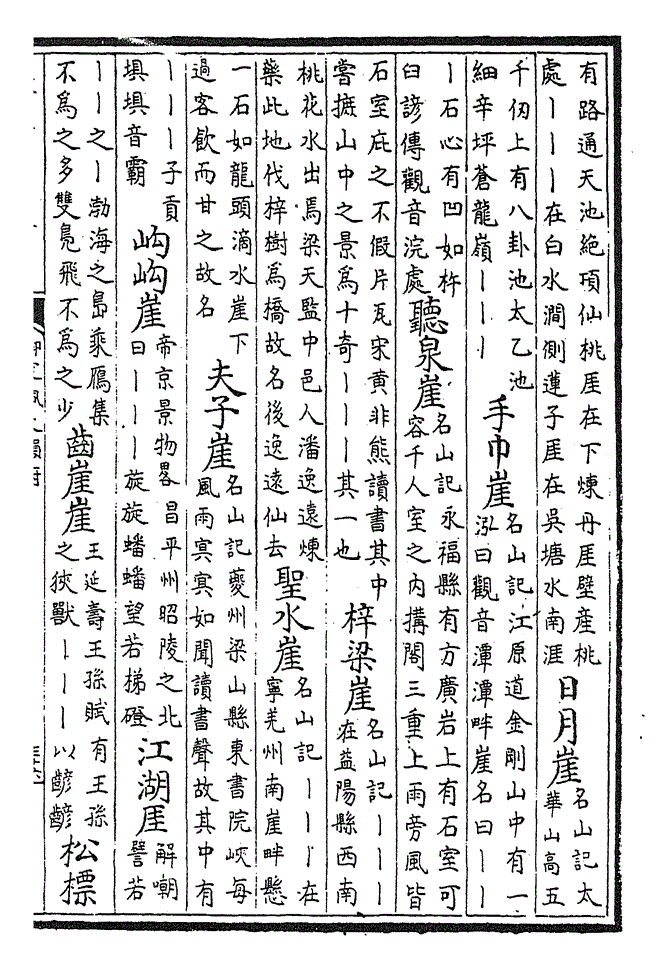 有路通天池絶頂仙桃厓在下煉丹厓壁産桃
處丨丨丨在白水澗側蓮子厓在吳塘水南涯
日月崖
名山記太
華山高五
千仞上有八卦池太乙池
細辛坪蒼龍嶺丨丨丨
手巾崖
名山記江原道金剛山中有一
泓曰觀音潭潭畔崖名曰丨丨
丨石心有凹如杵
臼諺傳觀音浣處
聽泉崖
名山記永福縣有方廣岩上有石室可
容千人室之内搆閣三重上雨旁風皆
石室庇之不假片瓦宋黄非熊讀書其中
嘗摭山中之景爲十奇丨丨丨其一也
梓梁崖
名山記丨丨丨
在益陽縣西南
桃花水出焉梁天監中邑人潘逸遠煉
藥此地伐梓樹爲橋故名後逸遠仙去
聖水崖
名山記丨丨丨在
寧羌州南崖畔懸
一石如龍頭滴水崖下
過客飲而甘之故名
夫子崖
名山記夔州梁山縣東書院峽每
風雨冥冥如聞讀書聲故其中有
丨丨丨子貢
垻垻音霸
岣岣崖
帝京景物畧昌平州昭陵之北
曰丨丨丨旋旋蟠蟠望若梯磴
江湖厓
解嘲
譬若
丨丨之丨渤海之島乘鴈集
不爲之多雙鳬飛不爲之少
齒崖崖
王延壽王孫賦有王孫
之狹獸丨丨丨以齴齴
松標